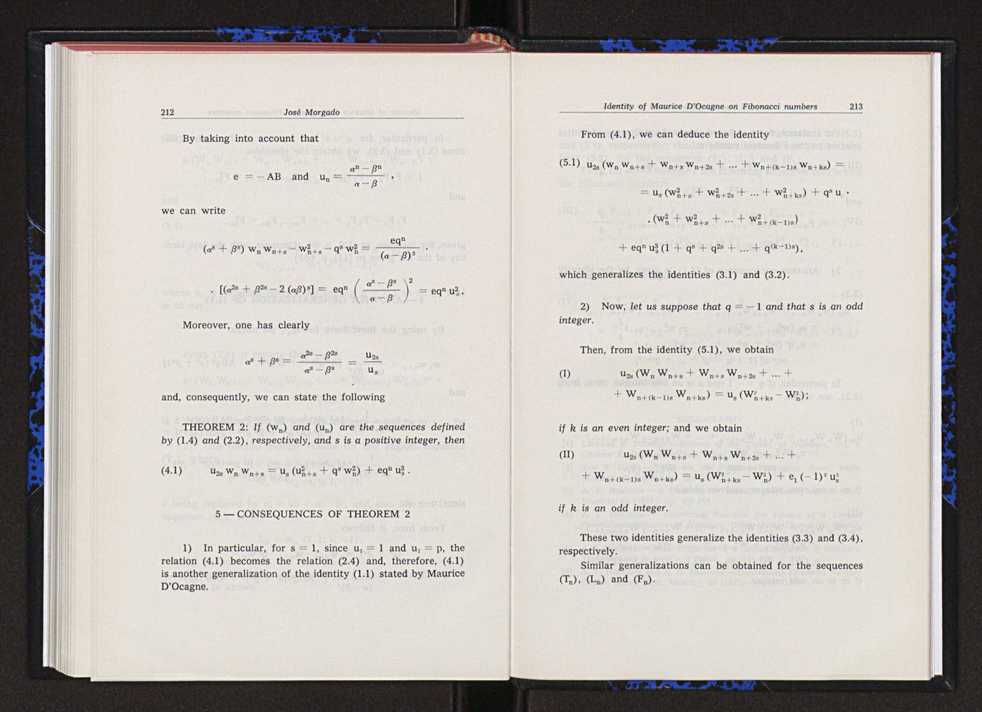 212 José Morgado
By taking into account that
e = − AB and uₙ = (αⁿ − βⁿ) / (α − β) ,
we can write
(αˢ + βˢ) wₙ wₙ₊ₛ − w²ₙ₊ₛ − qˢ w²ₙ = eqⁿ / (α − β)² ·
. [(α²ˢ + β²ˢ − 2 (αβ)ˢ] = eqⁿ ( (αˢ − βˢ) / (α − β) )² = eqⁿ u²ₛ.
Moreover, one has clearly
αˢ + βˢ = (α²ˢ − β²ˢ) / (αˢ − βˢ) = u₂ₛ / uₛ
and, consequently, we can state the following
THEOREM 2: If (wₙ) and (uₙ) are the sequences defined
by (1.4) and (2.2), respectively, and s is a positive integer, then
(4.1) u₂ₛ wₙ wₙ₊ₛ = uₛ (u²ₙ₊ₛ + qˢ w²ₙ) + eqⁿ u³ₛ .
5 — CONSEQUENCES OF THEOREM 2
1) In particular, for s = 1, since u₁ = 1 and u₂ = p, the
relation (4.1) becomes the relation (2.4) and, therefore, (4.1)
is another generalization of the identity (1.1) stated by Maurice
D'Ocagne.
Identity of Maurice D'Ocagne on Fibonacci numbers 213
From (4.1), we can deduce the identity
(5.1) u₂ₛ (wₙ wₙ₊ₛ + wₙ₊ₛ wₙ₊₂ₛ + ... + wₙ₊₍ₖ₋₁₎ₛ wₙ₊ₖₛ) =
= uₛ (w²ₙ₊ₛ + w²ₙ₊₂ₛ + ... + w²ₙ₊ₖₛ) + qˢ u ·
. (w²ₙ + w²ₙ₊ₛ + ... + w²ₙ₊₍ₖ₋₁₎ₛ)
+ eqⁿ u³ₛ (1 + qˢ + q²ˢ + ... + q⁽ᵏ⁻¹⁾ˢ),
which generalizes the identities (3.1) and (3.2).
2) Now, let us suppose that q = − 1 and that s is an odd
integer.
Then, from the identity (5.1), we obtain
(I) u₂ₛ (Wₙ Wₙ₊ₛ + Wₙ₊ₛ Wₙ₊₂ₛ + ... +
+ Wₙ₊₍ₖ₋₁₎ₛ Wₙ₊ₖₛ) = uₛ (W²ₙ₊ₖₛ − W²ₙ);
if k is an even integer; and we obtain
(II) u₂ₛ (Wₙ Wₙ₊ₛ + Wₙ₊ₛ Wₙ₊₂ₛ + ... +
+ Wₙ₊₍ₖ₋₁₎ₛ Wₙ₊ₖₛ) = uₛ (W²ₙ₊ₖₛ − W²ₙ) + e₁ (− 1)ⁿ u³ₛ
if k is an odd integer.
These two identities generalize the identities (3.3) and (3.4),
respectively.
Similar generalizations can be obtained for the sequences
(Tₙ), (Lₙ) and (Fₙ).